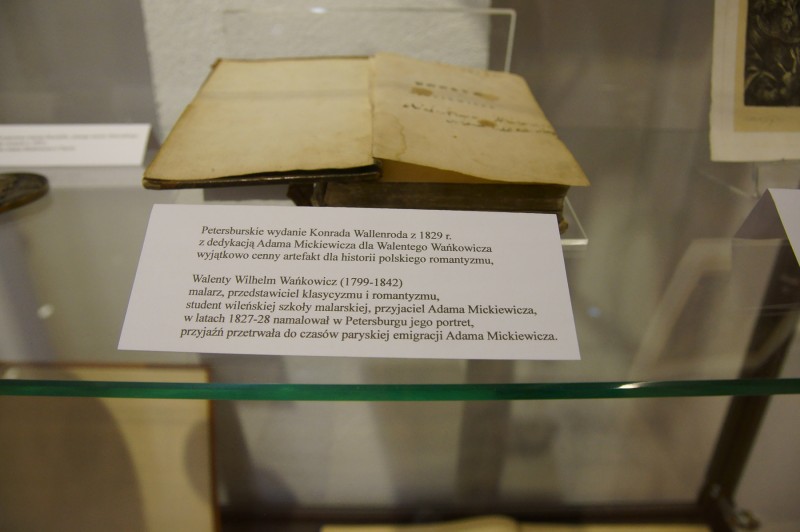 Petersburskie wydanie Konrada Wallenroda z 1829 r.
z dedykacją Adama Mickiewicza dla Walentego Wańkowicza
wyjątkowo cenny artefakt dla historii polskiego romantyzmu,
Walenty Wilhelm Wańkowicz (1799-1842)
malarz, przedstawiciel klasycyzmu i romantyzmu,
student wileńskiej szkoły malarskiej, przyjaciel Adama Mickiewicza,
w latach 1827-28 namalował w Petersburgu jego portret,
przyjaźń przetrwała do czasów paryskiej emigracji Adama Mickiewicza.